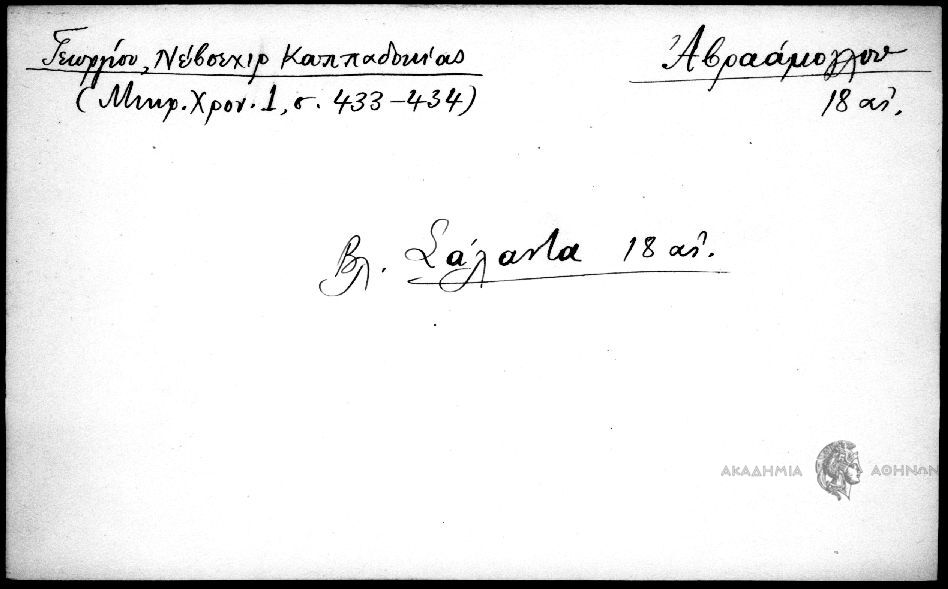 Γεωργίου, Νέβσεχιρ Καππαδοκίας
Ἀβραάμογλου
(Μικρ. Χρον. 1, σ. 433-434)
18 αἰ.
Βλ. Σάλαντα 18 αἰ.
ΑΚΑΔΗΜΙΑ ΑΘΗΝΩΝ